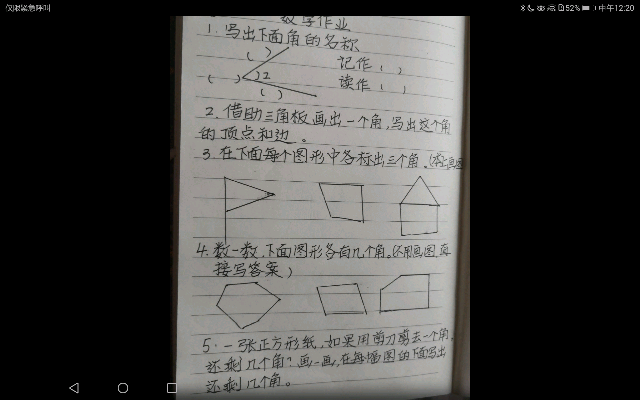 仅限紧急呼叫
52% 中午12:20
数学作业
1. 写出下面角的名称
( )
( ) 2 记作:( )
( ) 读作:( )
2. 借助三角板画出一个角,写出这个角
的顶点和边。
3. 在下面每个图形中各标出三个角。
4. 数一数,下面图形各有几个角。(不用画图,直
接写答案)
5. 一张正方形纸,如果用剪刀剪去一个角,
还剩几个角?画一画,在每幅图的下面写出
还剩几个角。